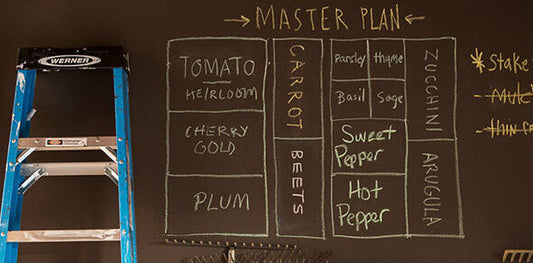 MASTER PLAN
WERNER
TOMATO
HEIRLOOM
CHERRY
GOLD
PLUM
CARROT
BEETS
Parsley
thyme
Basil
Sage
Sweet
Pepper
Hot
Pepper
ZUCCHINI
ARUGULA
* Stake
- Mulc
- thin